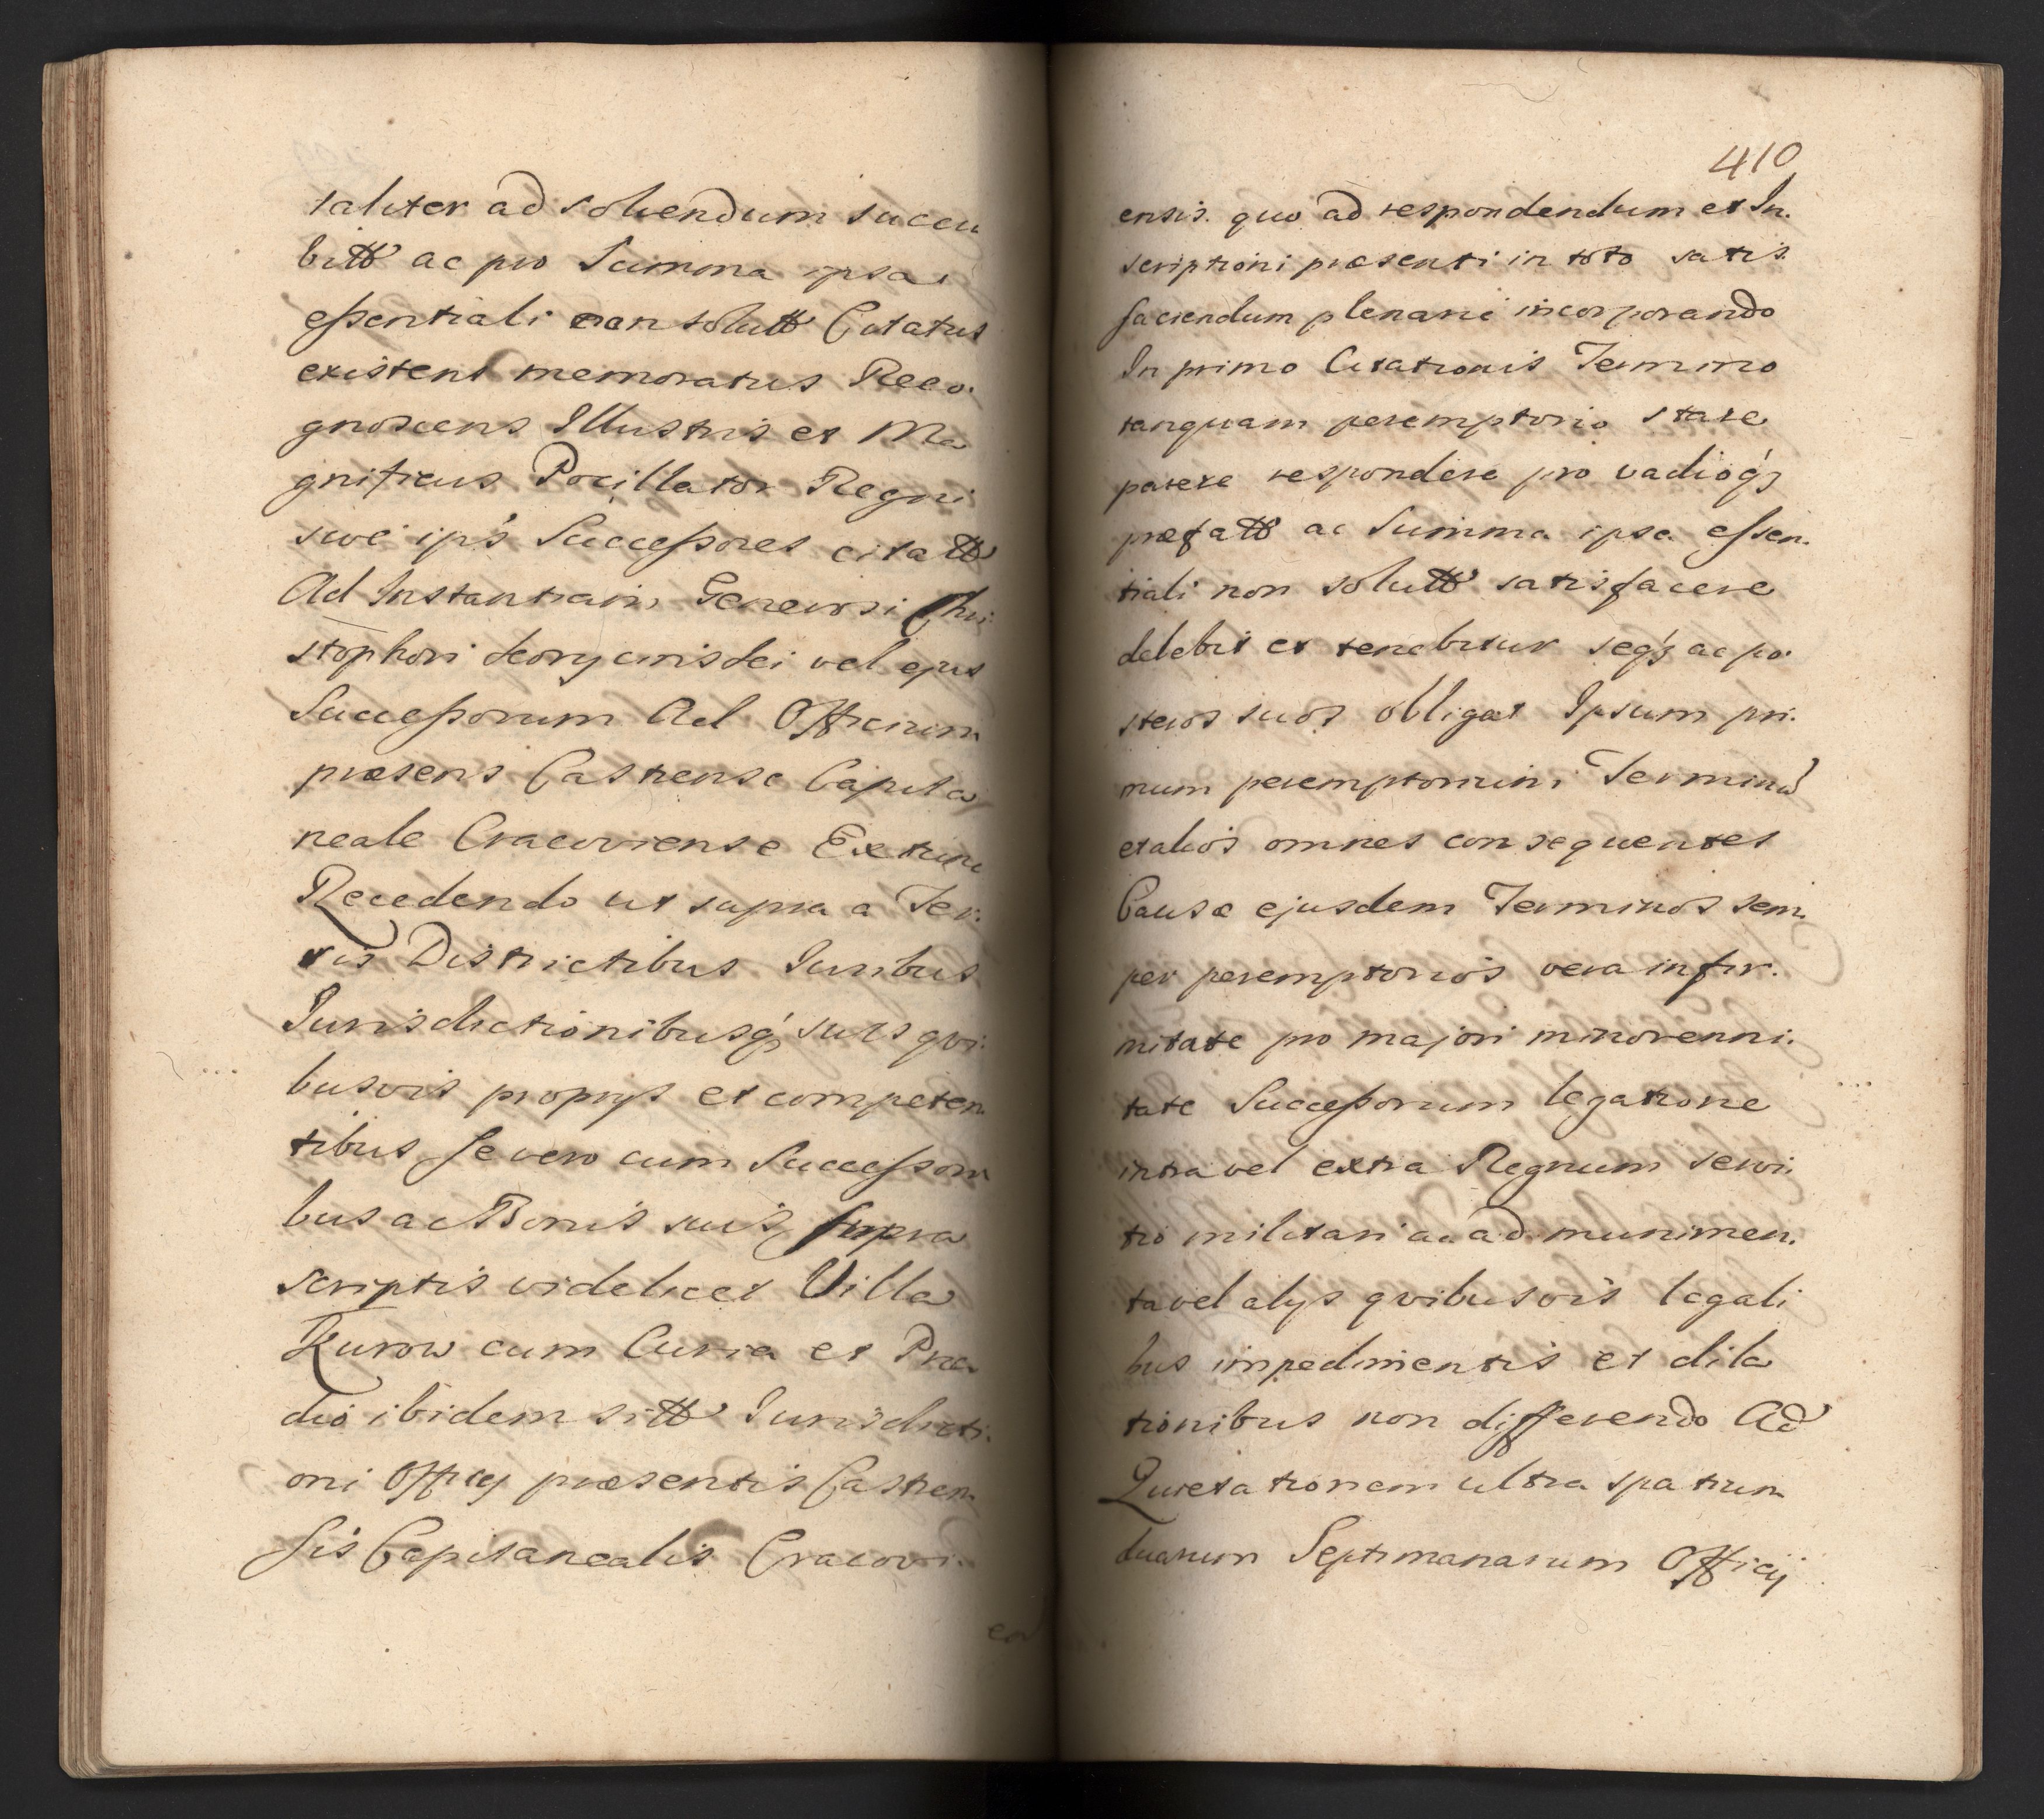 taliter ad solvendum succu
bitt ac pro Summa ipsa
essentiali non solutt Citatus
existens memoratus Reco.
gnoscens Illustris et Ma
gnificus Pocillator Regni
sive ips Successores citatt
Ad Instantiam Generosi Chri
stophori vel ejus
Successorum Ad Officium
præsens Castrense Capita
neale Cracoviense Extunc
Recedendo ut supra a Ter.
ris Districtibus Iuribus
Iurisdictionibusq suis qvi.
busvis propriis et competen
tibus se vero cum Successori
bus ac Bonis suis supra
scriptis videlicet Villa
Kurow cum Curia et Præ
dio ibidem sitt Iurisdicti.
oni Officij præsentis Castren
sis Capitanealis Cracovi.
en
410
ensis. quo ad respondendum et In.
scriptioni præsenti in toto satis.
faciendum plenarie incorporando
In primo Citationis Termino
tanquam peremptorio stare
parere respondere pro vadioq
præfatt ac Summa ipsa essen.
tiali non solutt satisfacere
debebit et tenebitur seq ac po.
steros suos obligat Ipsum pri.
mum peremptorium Terminu
et alios omnes consequentes
Causæ ejusdem Terminos sem.
per peremptorios vera infir.
mitate pro majori minorenni.
tate Successorum legatione
intra vel extra Regnum servi.
tio militari ac ad munimen.
ta vel alys qvibusvis legali
bus impedimentis et dila
tionibus non differendo Ad
Quietationem ultra spatium
duarum Septimanarum Officij